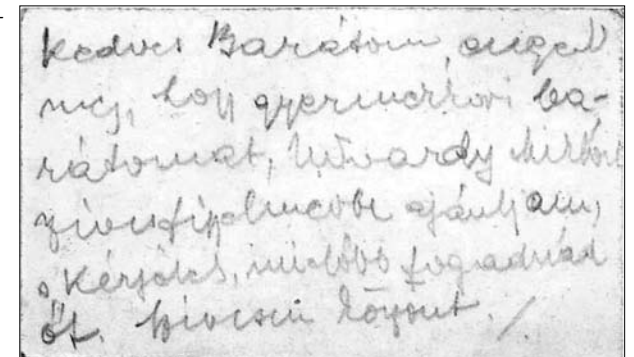 Kedves Barátom, enged
meg, hogy gyermekkori ba-
rátomat, Udvardy Miklóst
szíves figyelmedbe ajánljam,
s kérjelek, mielőbb fogadnád
őt. Szívesen köszönt